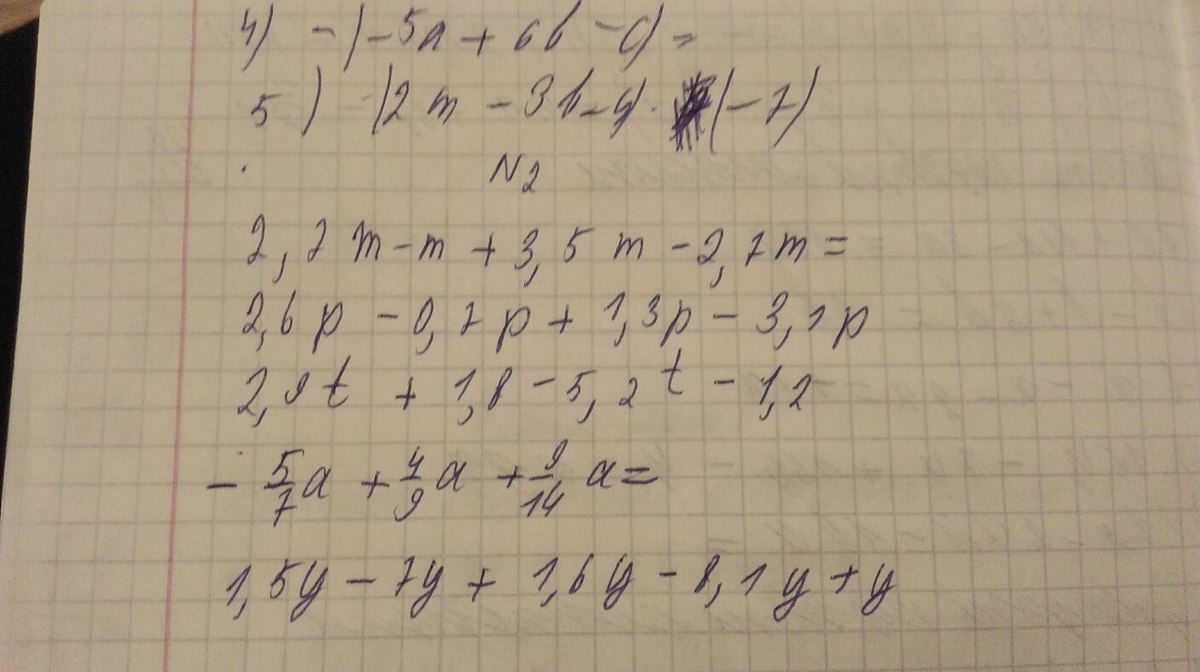 4) -(-5a + 6b - c) =
5) (2m - 3b - y) · (-7)
N2
2,7m - m + 3,5m - 2,7m =
2,6p - 0,7p + 1,3p - 3,1p
2,9t + 1,8 - 5,2t - 1,2
- 5/7 a + 4/9 a + 9/14 a =
1,5y - 7y + 1,6y - 8,1y + y